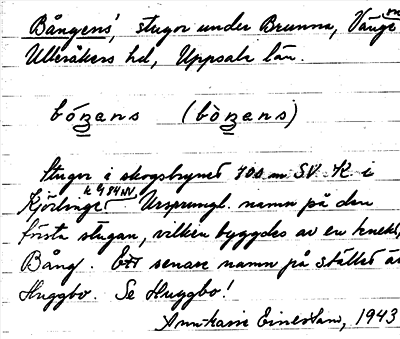 Bångens', stugor under Brunna, Vänge
Ulleråkers hd, Uppsala län.
bóŋans (bòŋans)
Stugor i skogsbrynet 700 m SV. K. i
Kjörlinge Ursprungl. namn på den
första stugan, vilken byggdes av en knekt,
Bång. Ett senare namn på stället är
Huggbo. Se Huggbo!
Ann-Karie Einerstam, 1943